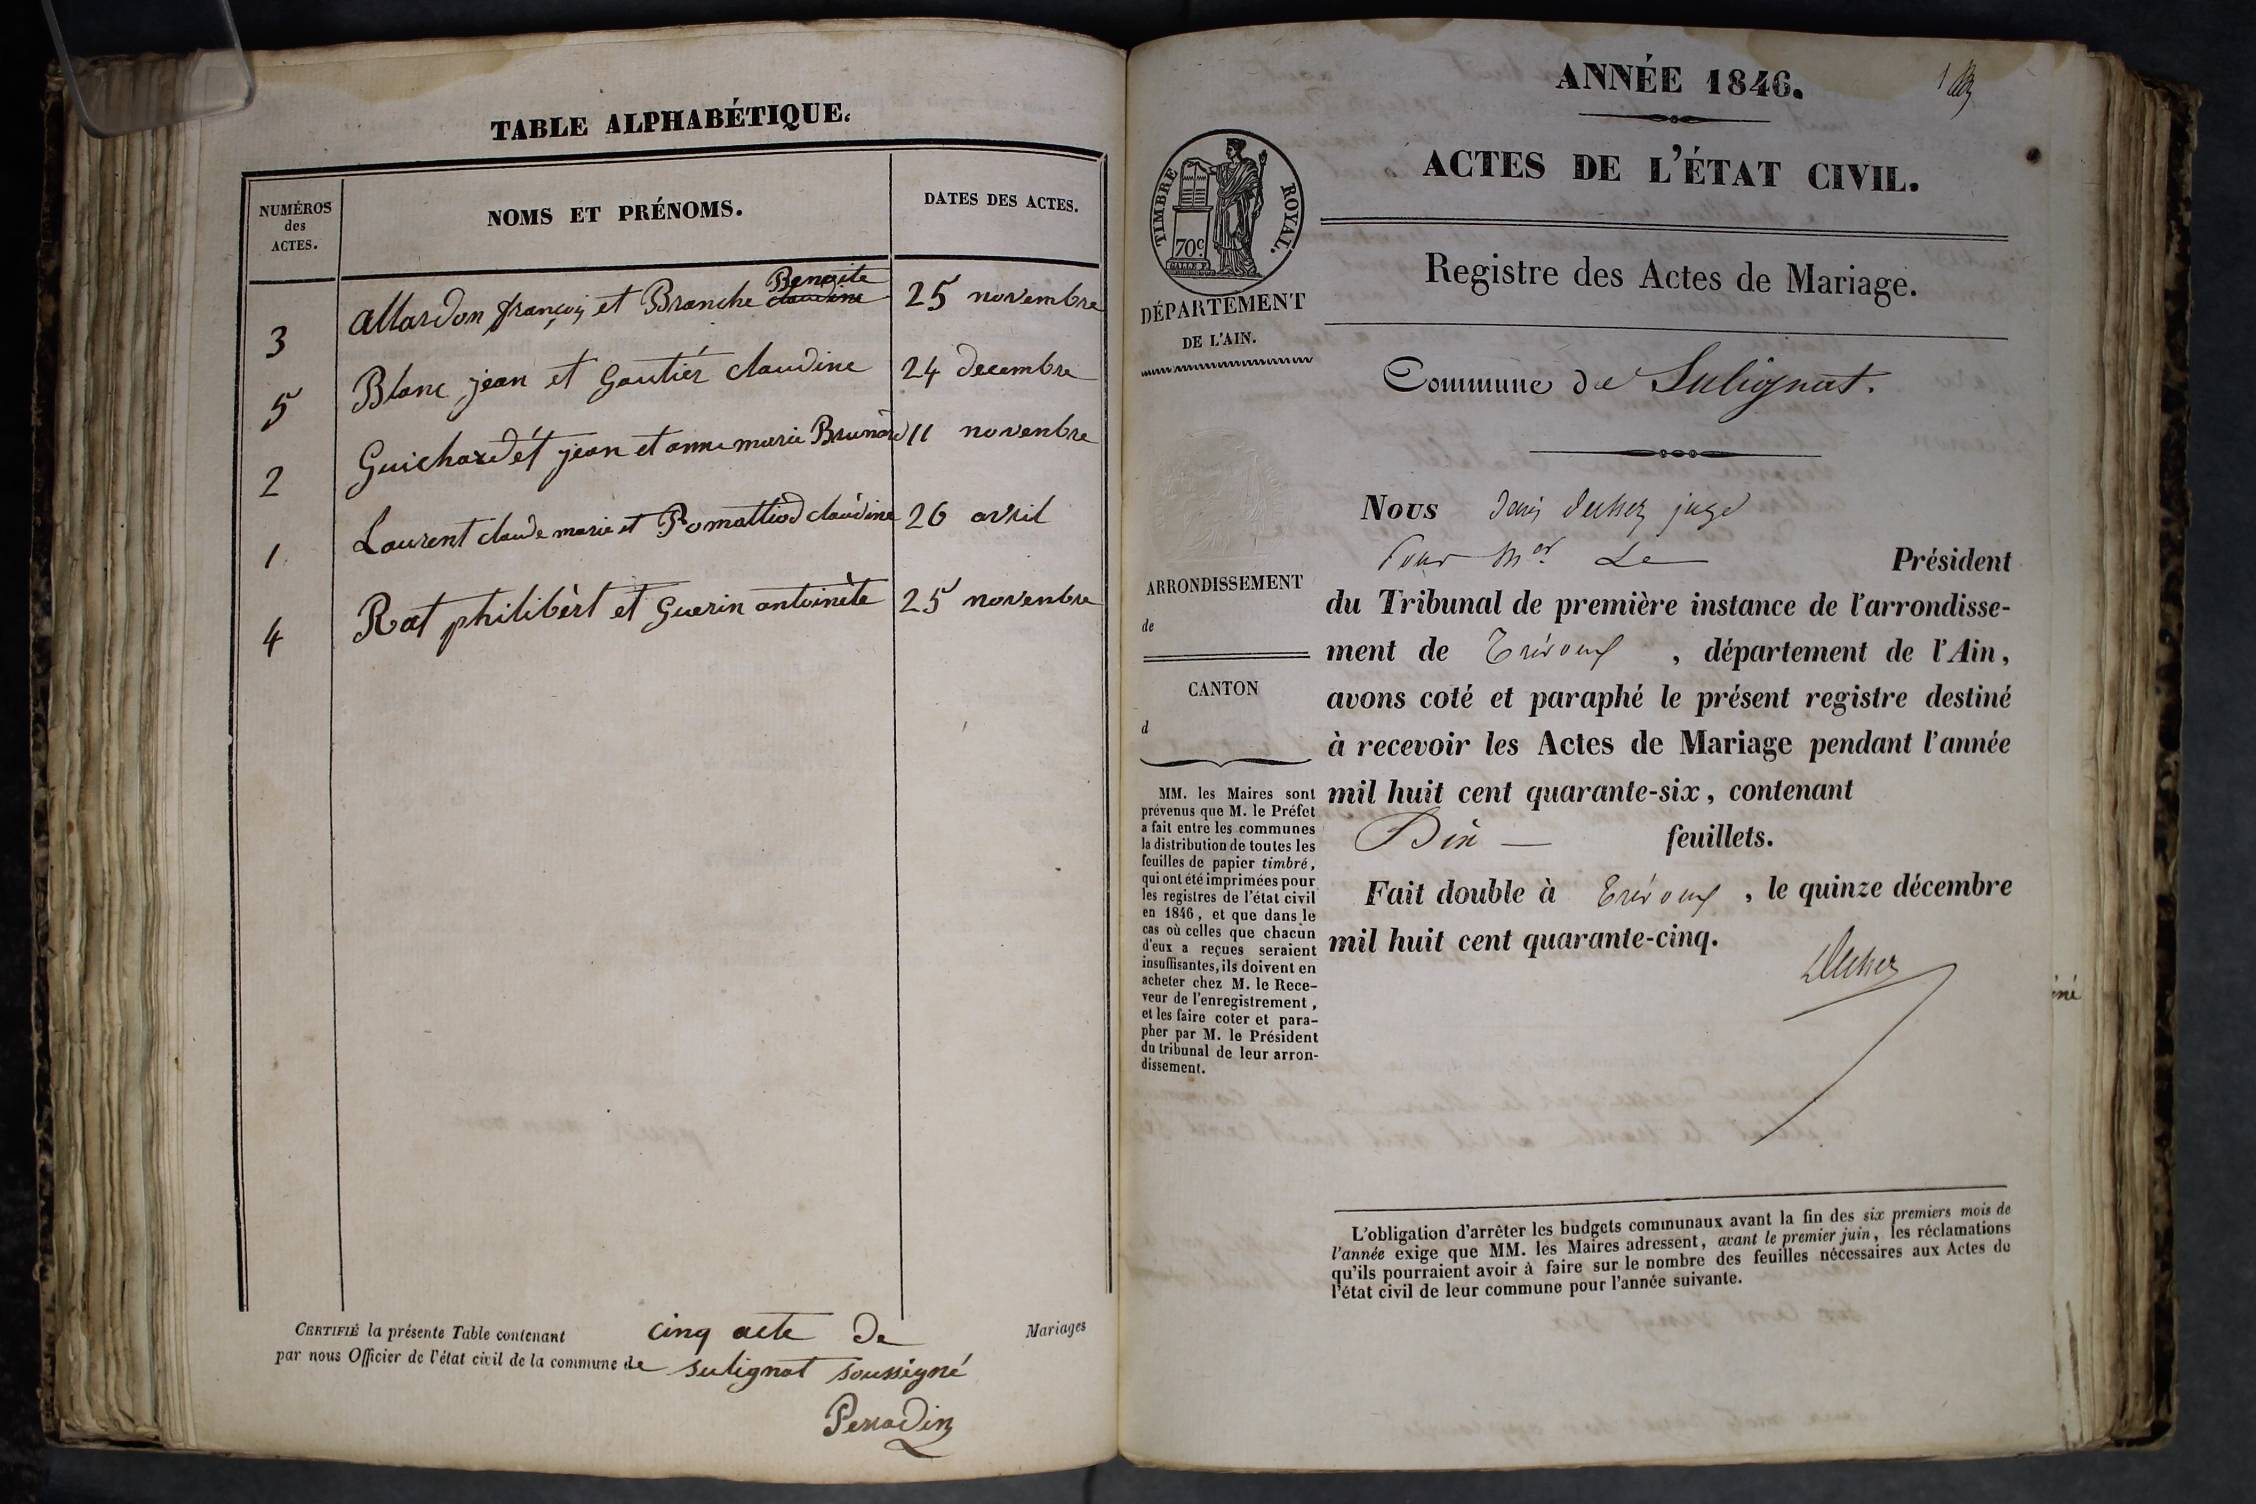 TABLE ALPHABÉTIQUE.
NUMÉROS
des
ACTES.
NOMS ET PRÉNOMS.
DATES DES ACTES.
Benoite
3 allardon françois et Branche claudine 25 novembre
5 Blanc jean et Gautiér claudine 24 decembre
2 Guichardét jean et anne marie Brunard 11 novenbre
1 Laurent claude marie et Pomattiod claudine 26 avril
4 Rat philibèrt et Guerin antoinète 25 novenbre
CERTIFIÉ la présente Table contenant cinq acte de Mariages
par nous Officier de l'état civil de la commune de sulignat soussigné
Perradin
ANNÉE 1846.
1
ACTES DE L'ÉTAT CIVIL.
TIMBRE ROYAL.
70c
DÉPARTEMENT
DE L'AIN.
Registre des Actes de Mariage.
Commune de Sulignat.
ARRONDISSEMENT
de
CANTON
d
MM. les Maires sont
prévenus que M. le Préfet
a fait entre les communes
la distribution de toutes les
feuilles de papier timbré,
qui ont été imprimées pour
les registres de l'état civil
en 1846, et que dans le
cas où celles que chacun
d'eux a reçues seraient
insuffisantes, ils doivent en
acheter chez M. le Rece-
veur de l'enregistrement,
et les faire coter et para-
pher par M. le Président
du tribunal de leur arron-
dissement.
Nous juge
Pour Mr. Le Président
du Tribunal de première instance de l'arrondisse-
ment de Trévoux, département de l'Ain,
avons coté et paraphé le présent registre destiné
à recevoir les Actes de Mariage pendant l'année
mil huit cent quarante-six, contenant
Dix feuillets.
Fait double à Trévoux, le quinze décembre
mil huit cent quarante-cinq.
L'obligation d'arrêter les budgets communaux avant la fin des six premiers mois de
l'année exige que MM. les Maires adressent, avant le premier juin, les réclamations
qu'ils pourraient avoir à faire sur le nombre des feuilles nécessaires aux Actes de
l'état civil de leur commune pour l'année suivante.